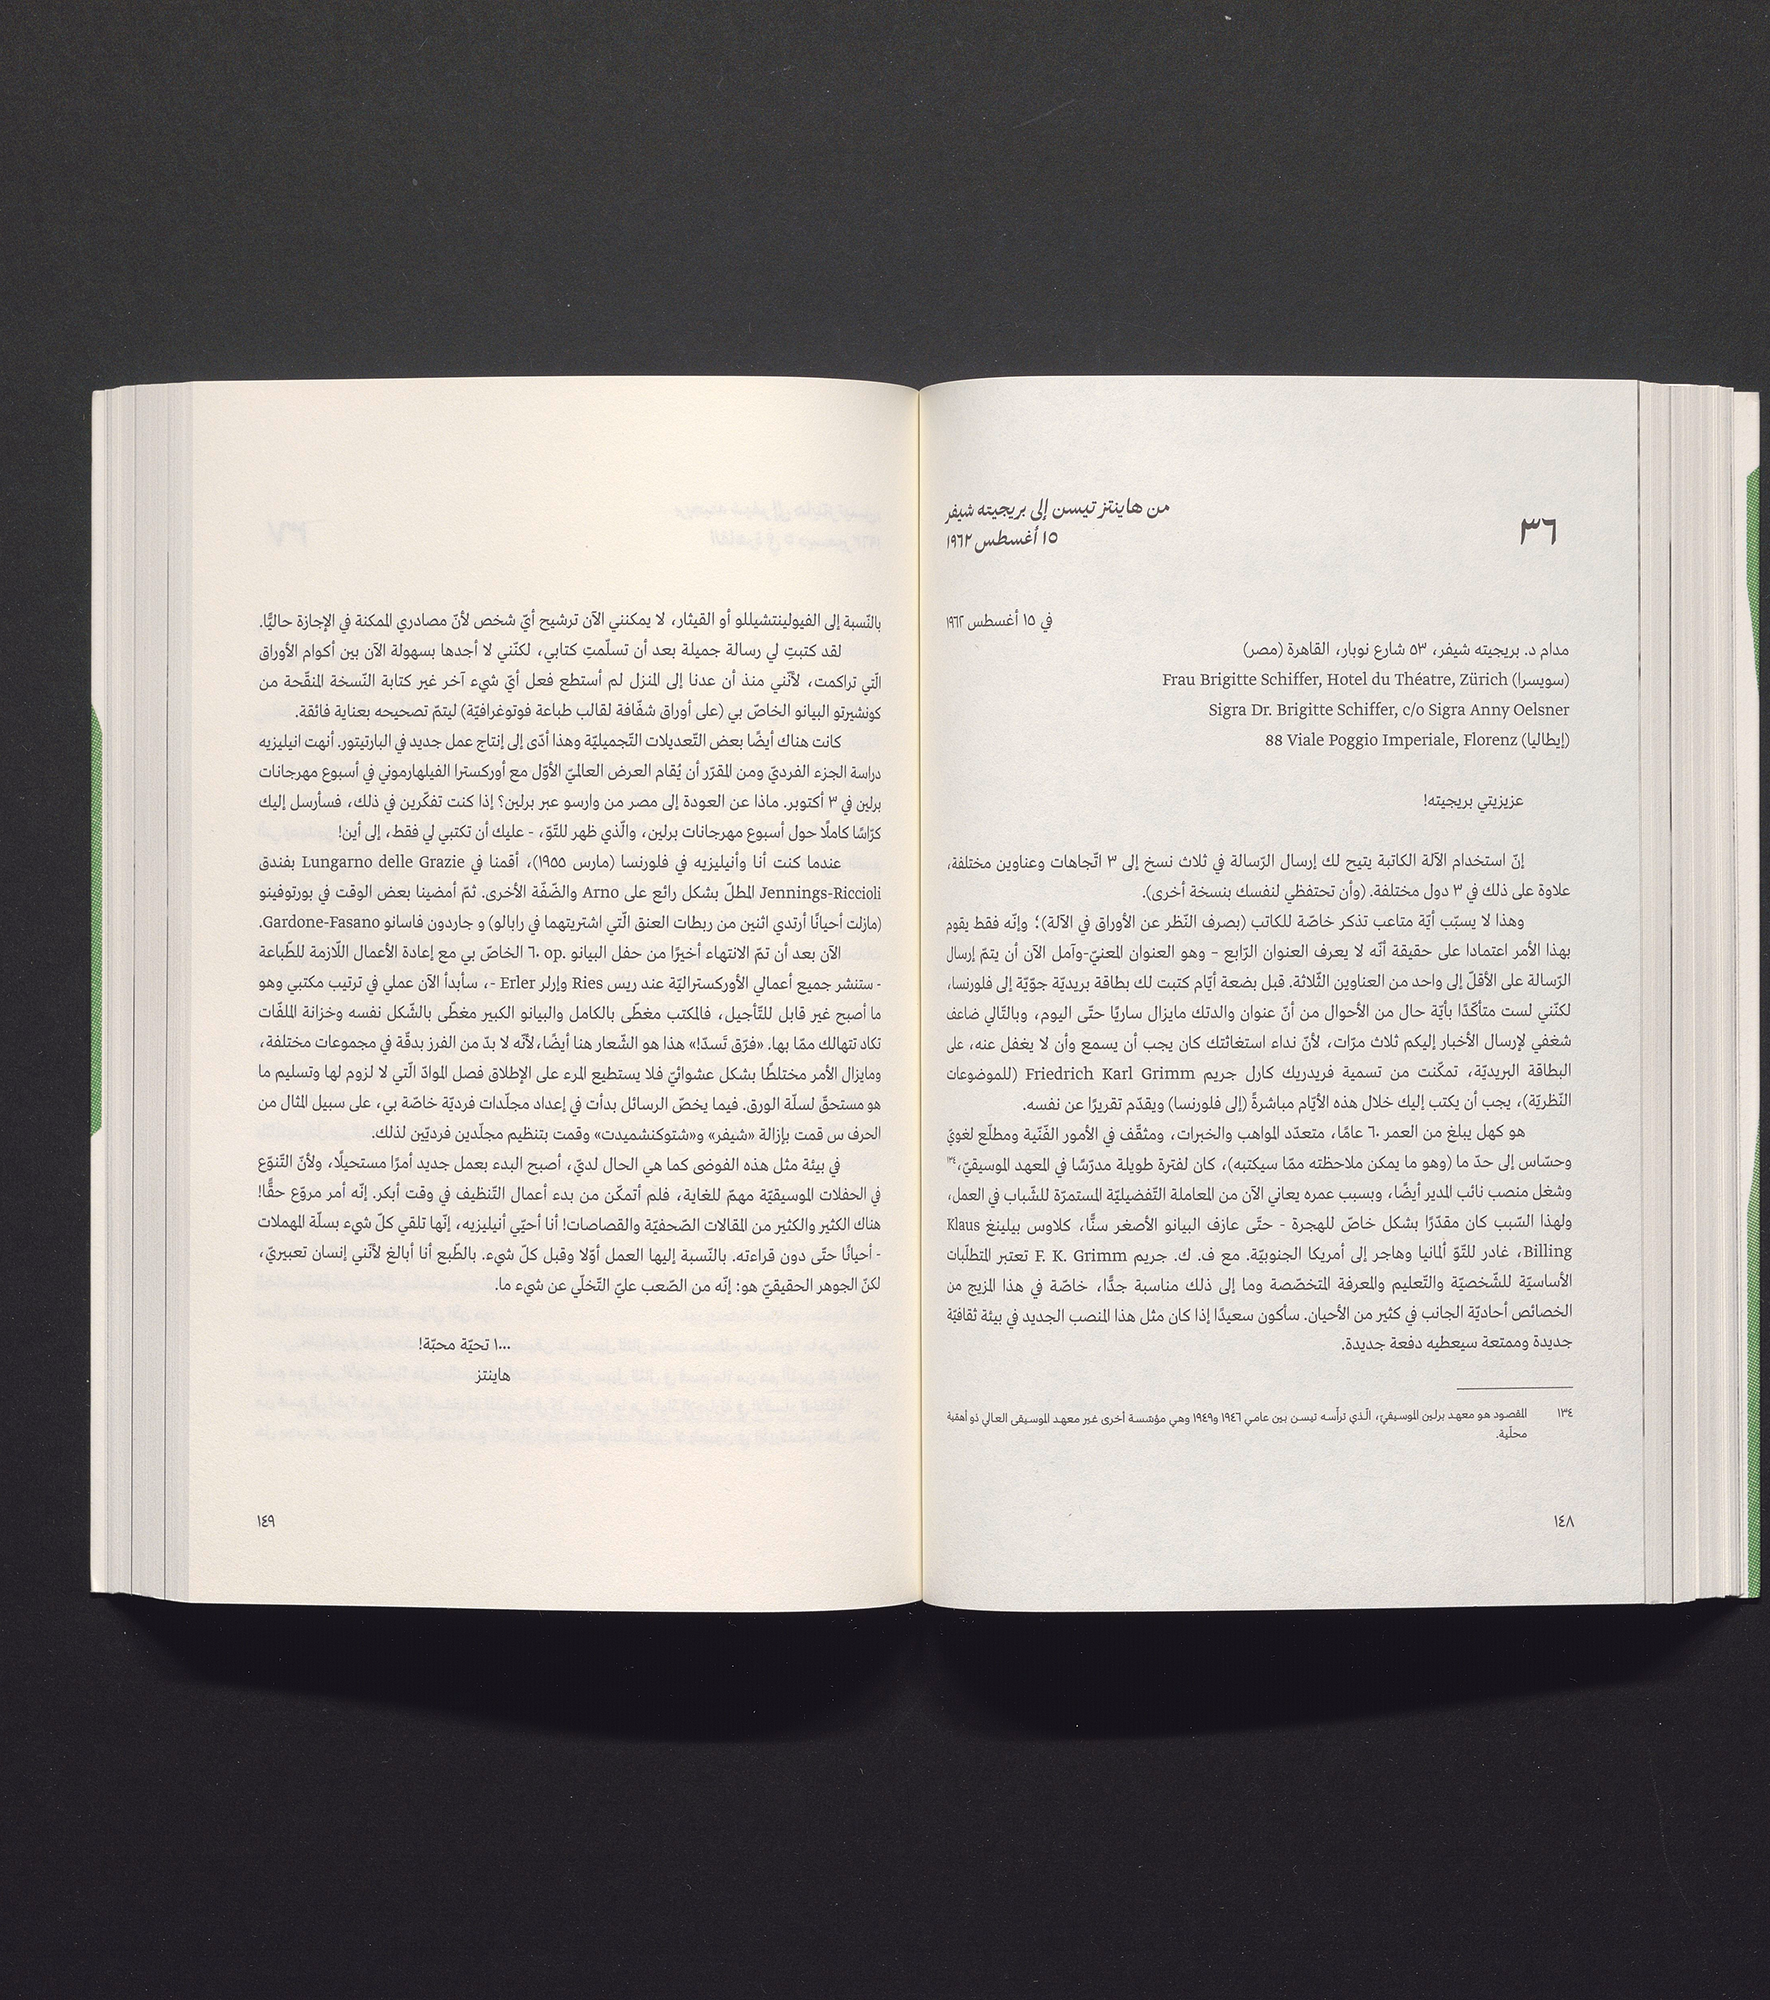 ٣٦
من هاينتز تيسن إلى بريجيته شيفر
١٥ أغسطس ١٩٦٢
في ١٥ أغسطس ١٩٦٢
مدام د. بريجيته شيفر، ٥٣ شارع نوبار، القاهرة (مصر)
Frau Brigitte Schiffer, Hotel du Théatre, Zürich (سويسرا)
Sigra Dr. Brigitte Schiffer, c/o Sigra Anny Oelsner
88 Viale Poggio Imperiale, Florenz (إيطاليا)
عزيزيتي بريجيته!
إنّ استخدام الآلة الكاتبة يتيح لك إرسال الرّسالة في ثلاث نسخ إلى ٣ اتّجاهات وعناوين مختلفة،
علاوة على ذلك في ٣ دول مختلفة. (وأن تحتفظي لنفسك بنسخة أخرى).
وهذا لا يسبّب أيّة متاعب تذكر خاصّة للكاتب (بصرف النّظر عن الأوراق في الآلة)؛ وإنّه فقط يقوم
بهذا الأمر اعتمادا على حقيقة أنّه لا يعرف العنوان الرّابع – وهو العنوان المعنيّ-وآمل الآن أن يتمّ إرسال
الرّسالة على الأقلّ إلى واحد من العناوين الثّلاثة. قبل بضعة أيّام كتبت لك بطاقة بريديّة جوّيّة إلى فلورنسا،
لكنّني لست متأكّدًا بأيّة حال من الأحوال من أنّ عنوان والدتك مايزال ساريًا حتّى اليوم، وبالتّالي ضاعف
شغفي لإرسال الأخبار إليكم ثلاث مرّات، لأنّ نداء استغاثتك كان يجب أن يسمع وأن لا يغفل عنه، على
البطاقة البريديّة، تمكّنت من تسمية فريدريك كارل جريم Friedrich Karl Grimm (للموضوعات
النّظريّة)، يجب أن يكتب إليك خلال هذه الأيّام مباشرةً (إلى فلورنسا) ويقدّم تقريرًا عن نفسه.
هو كهل يبلغ من العمر ٦٠ عامًا، متعدّد المواهب والخبرات، ومثقّف في الأمور الفّنّية ومطّلع لغويّ
وحسّاس إلى حدّ ما (وهو ما يمكن ملاحظته ممّا سيكتبه)، كان لفترة طويلة مدرّسًا في المعهد الموسيقيّ،١٣٤
وشغل منصب نائب المدير أيضًا، وبسبب عمره يعاني الآن من المعاملة التّفضيليّة المستمرّة للشّباب في العمل،
ولهذا السّبب كان مقدّرًا بشكل خاصّ للهجرة - حتّى عازف البيانو الأصغر سنًّا، كلاوس بيلينغ Klaus
Billing، غادر للتّوّ ألمانيا وهاجر إلى أمريكا الجنوبيّة. مع ف. ك. جريم F. K. Grimm تعتبر المتطلّبات
الأساسيّة للشّخصيّة والتّعليم والمعرفة المتخصّصة وما إلى ذلك مناسبة جدًّا، خاصّة في هذا المزيج من
الخصائص أحاديّة الجانب في كثير من الأحيان. سأكون سعيدًا إذا كان مثل هذا المنصب الجديد في بيئة ثقافيّة
جديدة وممتعة سيعطيه دفعة جديدة.
١٣٤ المقصود هو معهد برلين الموسيقيّ، الّذي ترأّسه تيسن بين عامي ١٩٤٦ و١٩٤٩ وهي مؤسّسة أخرى غير معهد الموسيقى العالي ذو أهمّية
محلّية.
١٤٨
بالنّسبة إلى الفيولينتشيللو أو القيثار، لا يمكنني الآن ترشيح أيّ شخص لأنّ مصادري الممكنة في الإجازة حاليًّا.
لقد كتبتِ لي رسالة جميلة بعد أن تسلّمتِ كتابي، لكنّني لا أجدها بسهولة الآن بين أكوام الأوراق
الّتي تراكمت، لأنّني منذ أن عدنا إلى المنزل لم أستطع فعل أيّ شيء آخر غير كتابة النّسخة المنقّحة من
كونشيرتو البيانو الخاصّ بي (على أوراق شفّافة لقالب طباعة فوتوغرافيّة) ليتمّ تصحيحه بعناية فائقة.
كانت هناك أيضًا بعض التّعديلات التّجميليّة وهذا أدّى إلى إنتاج عمل جديد في البارتيتور. أنهت انيليزيه
دراسة الجزء الفرديّ ومن المقرّر أن يُقام العرض العالميّ الأوّل مع أوركسترا الفيلهارموني في أسبوع مهرجانات
برلين في ٣ أكتوبر. ماذا عن العودة إلى مصر من وارسو عبر برلين؟ إذا كنت تفكّرين في ذلك، فسأرسل إليك
كرّاسًا كاملًا حول أسبوع مهرجانات برلين، والّذي ظهر للتّوّ، - عليك أن تكتبي لي فقط، إلى أين!
عندما كنت أنا وأنيليزيه في فلورنسا (مارس ١٩٥٥)، أقمنا في Lungarno delle Grazie بفندق
Jennings-Riccioli المطلّ بشكل رائع على Arno والضّفّة الأخرى. ثمّ أمضينا بعض الوقت في بورتوفينو
(مازلت أحيانًا أرتدي اثنين من ربطات العنق الّتي اشتريتهما في رابالو) و جاردون فاسانو Gardone-Fasano.
الآن بعد أن تمّ الانتهاء أخيرًا من حفل البيانو .op ٦٠ الخاصّ بي مع إعادة الأعمال اللّازمة للطّباعة
- ستنشر جميع أعمالي الأوركستراليّة عند ريس Ries وإرلر Erler -، سأبدأ الآن عملي في ترتيب مكتبي وهو
ما أصبح غير قابل للتّأجيل، فالمكتب مغطّى بالكامل والبيانو الكبير مغطّى بالشّكل نفسه وخزانة الملفّات
تكاد تتهالك ممّا بها. «فرّق تَسدّ!» هذا هو الشّعار هنا أيضًا،لأنّه لا بدّ من الفرز بدقّة في مجموعات مختلفة،
ومايزال الأمر مختلطًا بشكل عشوائيّ فلا يستطيع المرء على الإطلاق فصل الموادّ الّتي لا لزوم لها وتسليم ما
هو مستحقّ لسلّة الورق. فيما يخصّ الرسائل بدأت في إعداد مجلّدات فرديّة خاصّة بي، على سبيل المثال من
الحرف س قمت بإزالة «شيفر» و«شتوكنشميدت» وقمت بتنظيم مجلّدين فرديّين لذلك.
في بيئة مثل هذه الفوضى كما هي الحال لديّ، أصبح البدء بعمل جديد أمرًا مستحيلًا، ولأنّ التّنوّع
في الحفلات الموسيقيّة مهمّ للغاية، فلم أتمكّن من بدء أعمال التّنظيف في وقت أبكر. إنّه أمر مروّع حقًّا!
هناك الكثير والكثير من المقالات الصّحفيّة والقصاصات! أنا أحيّي أنيليزيه، إنّها تلقي كلّ شيء بسلّة المهملات
- أحيانًا حتّى دون قراءته. بالنّسبة إليها العمل أوّلا وقبل كلّ شيء. بالطّبع أنا أبالغ لأنّني إنسان تعبيريّ،
لكنّ الجوهر الحقيقيّ هو: إنّه من الصّعب عليّ التّخلّي عن شيء ما.
١٠٠٠ تحيّة محبّة!
هاينتز
١٤٩